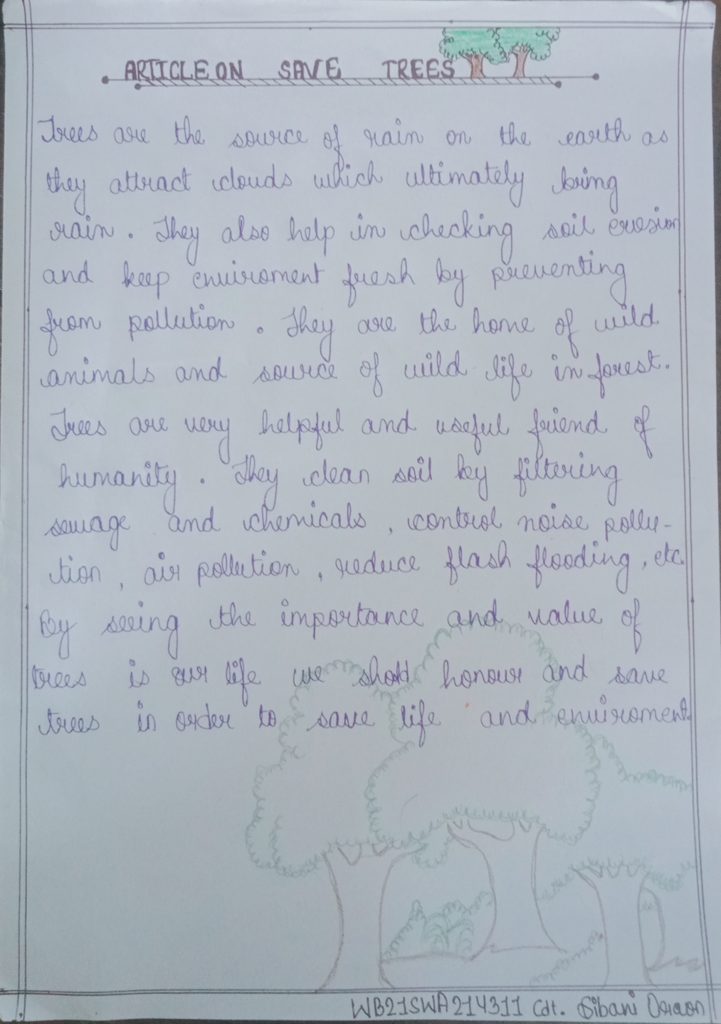 ARTICLE ON SAVE TREES
Trees are the source of rain on the earth as
they attract clouds which ultimately bring
rain. They also help in checking soil erosion
and keep enviroment fresh by preventing
from pollution. They are the home of wild
animals and source of wild life in forest.
Trees are very helpful and useful friend of
humanity. They clean soil by filtering
sewage and chemicals, control noise pollu-
tion, air pollution, reduce flash flooding, etc.
By seeing the importance and value of
trees is our life we shold honour and save
trees in order to save life and enviroment.
WB21SWA214311 Cdt. Sibani Oraon